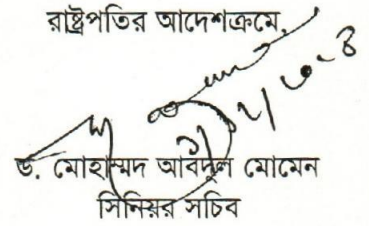 রাষ্ট্রপতির আদেশক্রমে,
ড. মোহাম্মদ আবদুল মোমেন
সিনিয়র সচিব